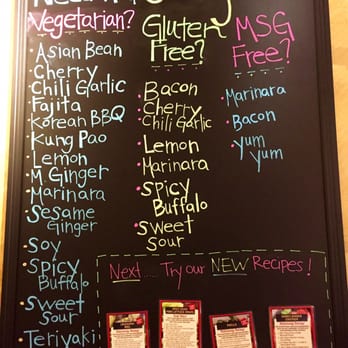 Vegetarian?
• Asian Bean
• Cherry
• Chili Garlic
• Fajita
• Korean BBQ
• Kung Pao
• Lemon
• M Ginger
• Marinara
• Sesame
Ginger
• Soy
• Spicy
Buffalo
• Sweet
Sour
• Teriyaki
Gluten
Free?
• Bacon
• Cherry
• Chili Garlic
• Lemon
• Marinara
• Spicy
Buffalo
• Sweet
Sour
MSG
Free?
• Marinara
• Bacon
• Yum
Yum
Next..... Try our NEW Recipes!